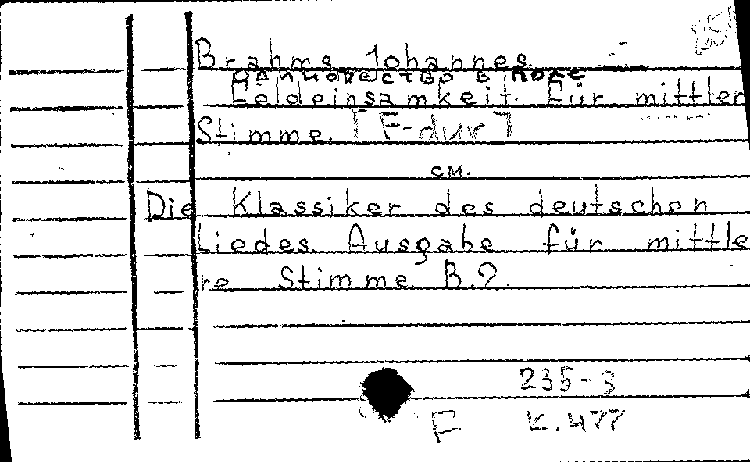 Brahms, Johannes.
одиночество в поле
Feldeinsamkeit. Für mittlere
Stimme. [F-dur]
см.
Die Klassiker des deutschen
Liedes. Ausgabe für mittle
re Stimme. B.2.
235-3
F K.477